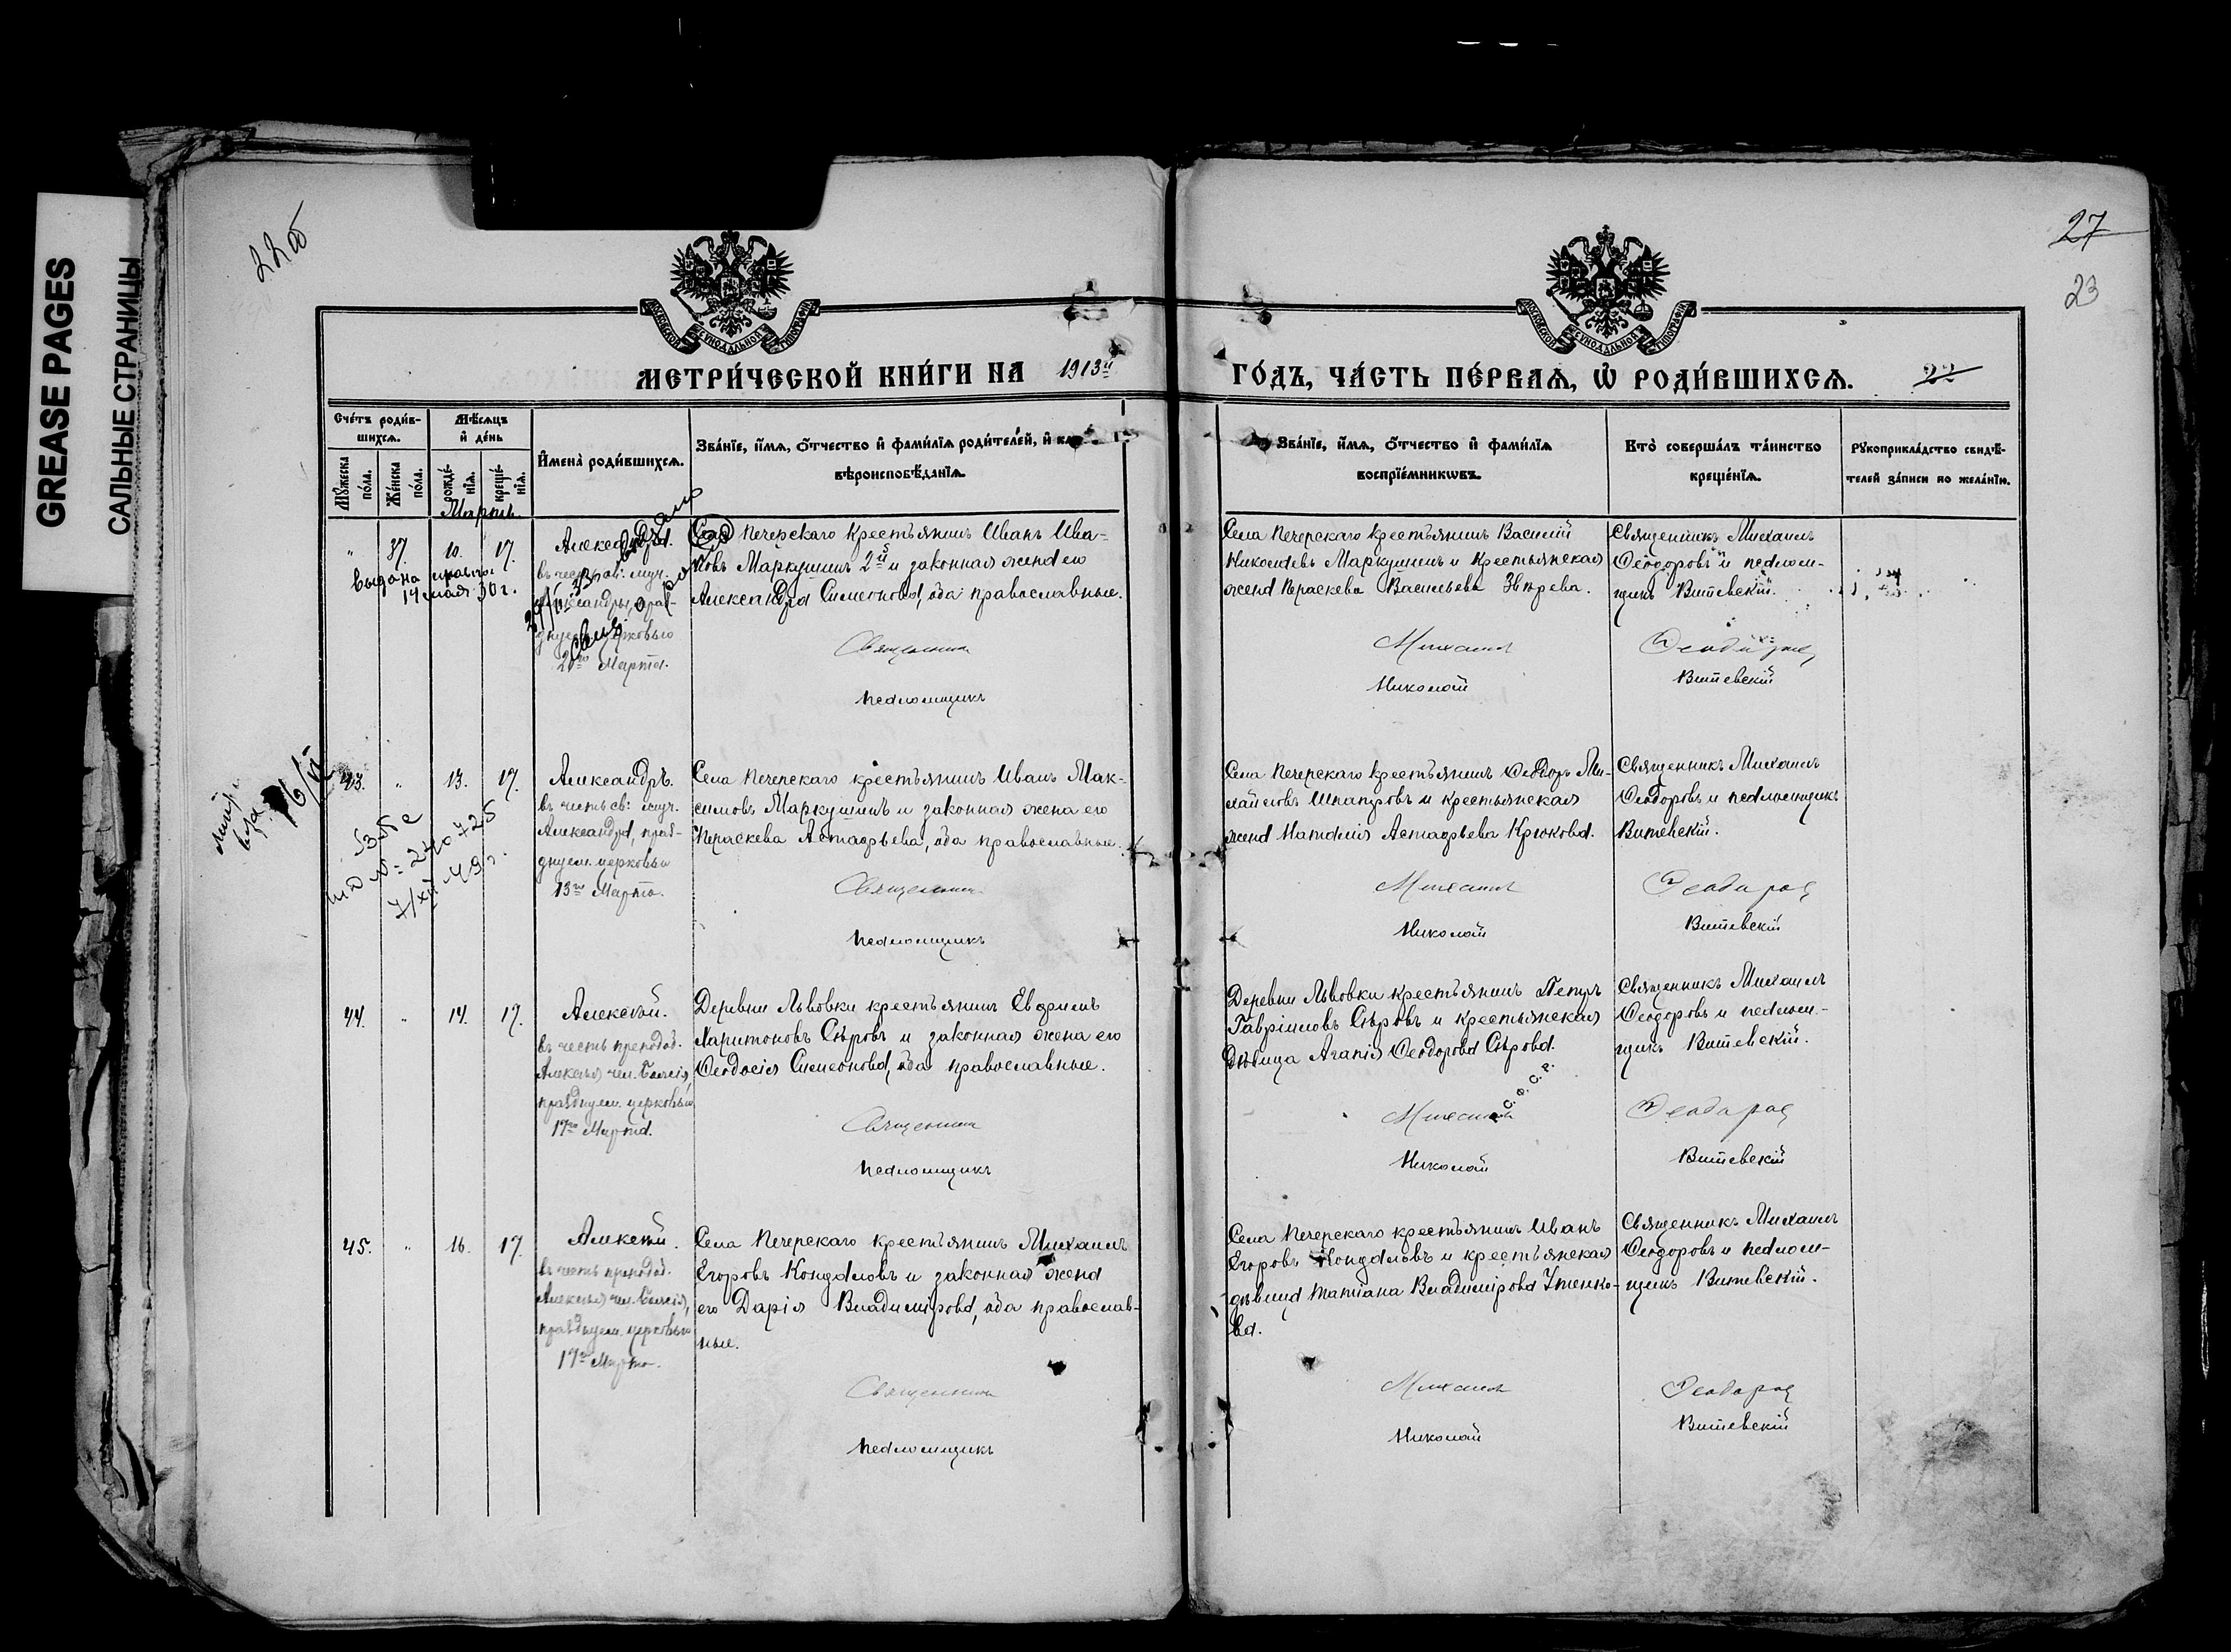 GREASE PAGES
САЛЬНЫЕ СТРАНИЦЫ
22об
27
23
МОСКОВСКОЙ СѴНОДАЛЬНОЙ ТИПОГРАФІИ
МОСКОВСКОЙ СѴНОДАЛЬНОЙ ТИПОГРАФІИ
МЕТРИ́ЧЕСКОЙ КНИ́ГИ НА 1913й
ГО́ДЪ, ЧА́СТЬ ПЕ́РВАѦ, Ѡ҆ РОДИ́ВШИХСѦ. 22
Сче́тъ роди́в-
шихсѧ.
Мѣ́сѧцъ
и҆ де́нь
Мꙋ́жеска
по́ла.
Же́нска
по́ла.
рожде́-
нїѧ.
креще́-
нїѧ.
И҆мена̀ роди́вшихсѧ.
Зва́нїе, и҆́мѧ, ѻ҆́тчество и҆ фами́лїѧ роди́телей, и҆
вѣроисповѣ́данїѧ.
Зва́нїе, и҆́мѧ, ѻ҆́тчество и҆ фами́лїѧ
воспрїе́мникѡвъ.
Кто̀ соверша́лъ та́инство
креще́нїѧ.
Рꙋкоприкла́дство свидѣ́-
телей за́писи по жела́нїю.
Мартъ.
" 37. 10. 17.
выдана
14 мая 30 г.
Александра.
въ честь св: муч.
Александры, праз-
днуем. церковью
20го Марта.
Села Печерскаго Крестьянинъ Иванъ Ива-
новъ Маркушинъ 2й и законная жена его
Александра Симеонова, оба православные.
Священникъ
Псаломщикъ
Села Печерскаго крестьянинъ Василій
Николаевъ Маркушинъ и крестьянская
жена Параскева Васильева Звѣрева.
Михаилъ
Николай
Священникъ Михаилъ
Ѳеодоровъ и псалом-
щикъ Витевскій.
Ѳеодоровъ
Витевскій
43. " 13. 17.
16/VI
№ 240725
7/XII 49 г.
Александръ.
въ честь св: муч.
Александра, праз-
днуем. церковью
13го Марта.
Села Печерскаго крестьянинъ Иванъ Мак-
симовъ Маркушинъ и законная жена его
Параскева Астафьева, оба православные.
Священникъ
Псаломщикъ
Села Печерскаго крестьянинъ Ѳеодоръ Ми-
хайловъ Шпагировъ и крестьянская
жена Наталія Астафьева Крюкова.
Михаилъ
Николай
Священникъ Михаилъ
Ѳеодоровъ и псаломщикъ
Витевскій.
Ѳеодоровъ
Витевскій
44. " 14. 17.
Алексѣй.
въ честь преподоб.
Алексѣя чел. Божія,
празднуем. церковью
17го Марта.
Деревни Львовки крестьянинъ Евфимъ
Харитоновъ Сѣровъ и законная жена его
Ѳеодосія Симеонова, оба православные.
Священникъ
Псаломщикъ
Деревни Львовки крестьянинъ Петръ
Гавріиловъ Сѣровъ и крестьянская
дѣвица Агапія Ѳеодорова Сѣрова.
С. Ф. С. Р.
Михаилъ
Николай
Священникъ Михаилъ
Ѳеодоровъ и псалом-
щикъ Витевскій.
Ѳеодоровъ
Витевскій
45. " 16. 17.
Алексѣй.
въ честь преподоб.
Алексѣя чел. Божія,
празднуем. церковью
17го Марта.
Села Печерскаго крестьянинъ Михаилъ
Егоровъ Кондаловъ и законная жена
его Дарія Владимірова, оба православ-
ные.
Священникъ
Псаломщикъ
Села Печерскаго крестьянинъ Иванъ
Егоровъ Кондаловъ и крестьянская
дѣвица Татіана Владимірова Утенко-
ва.
Михаилъ
Николай
Священникъ Михаилъ
Ѳеодоровъ и псалом-
щикъ Витевскій.
Ѳеодоровъ
Витевскій